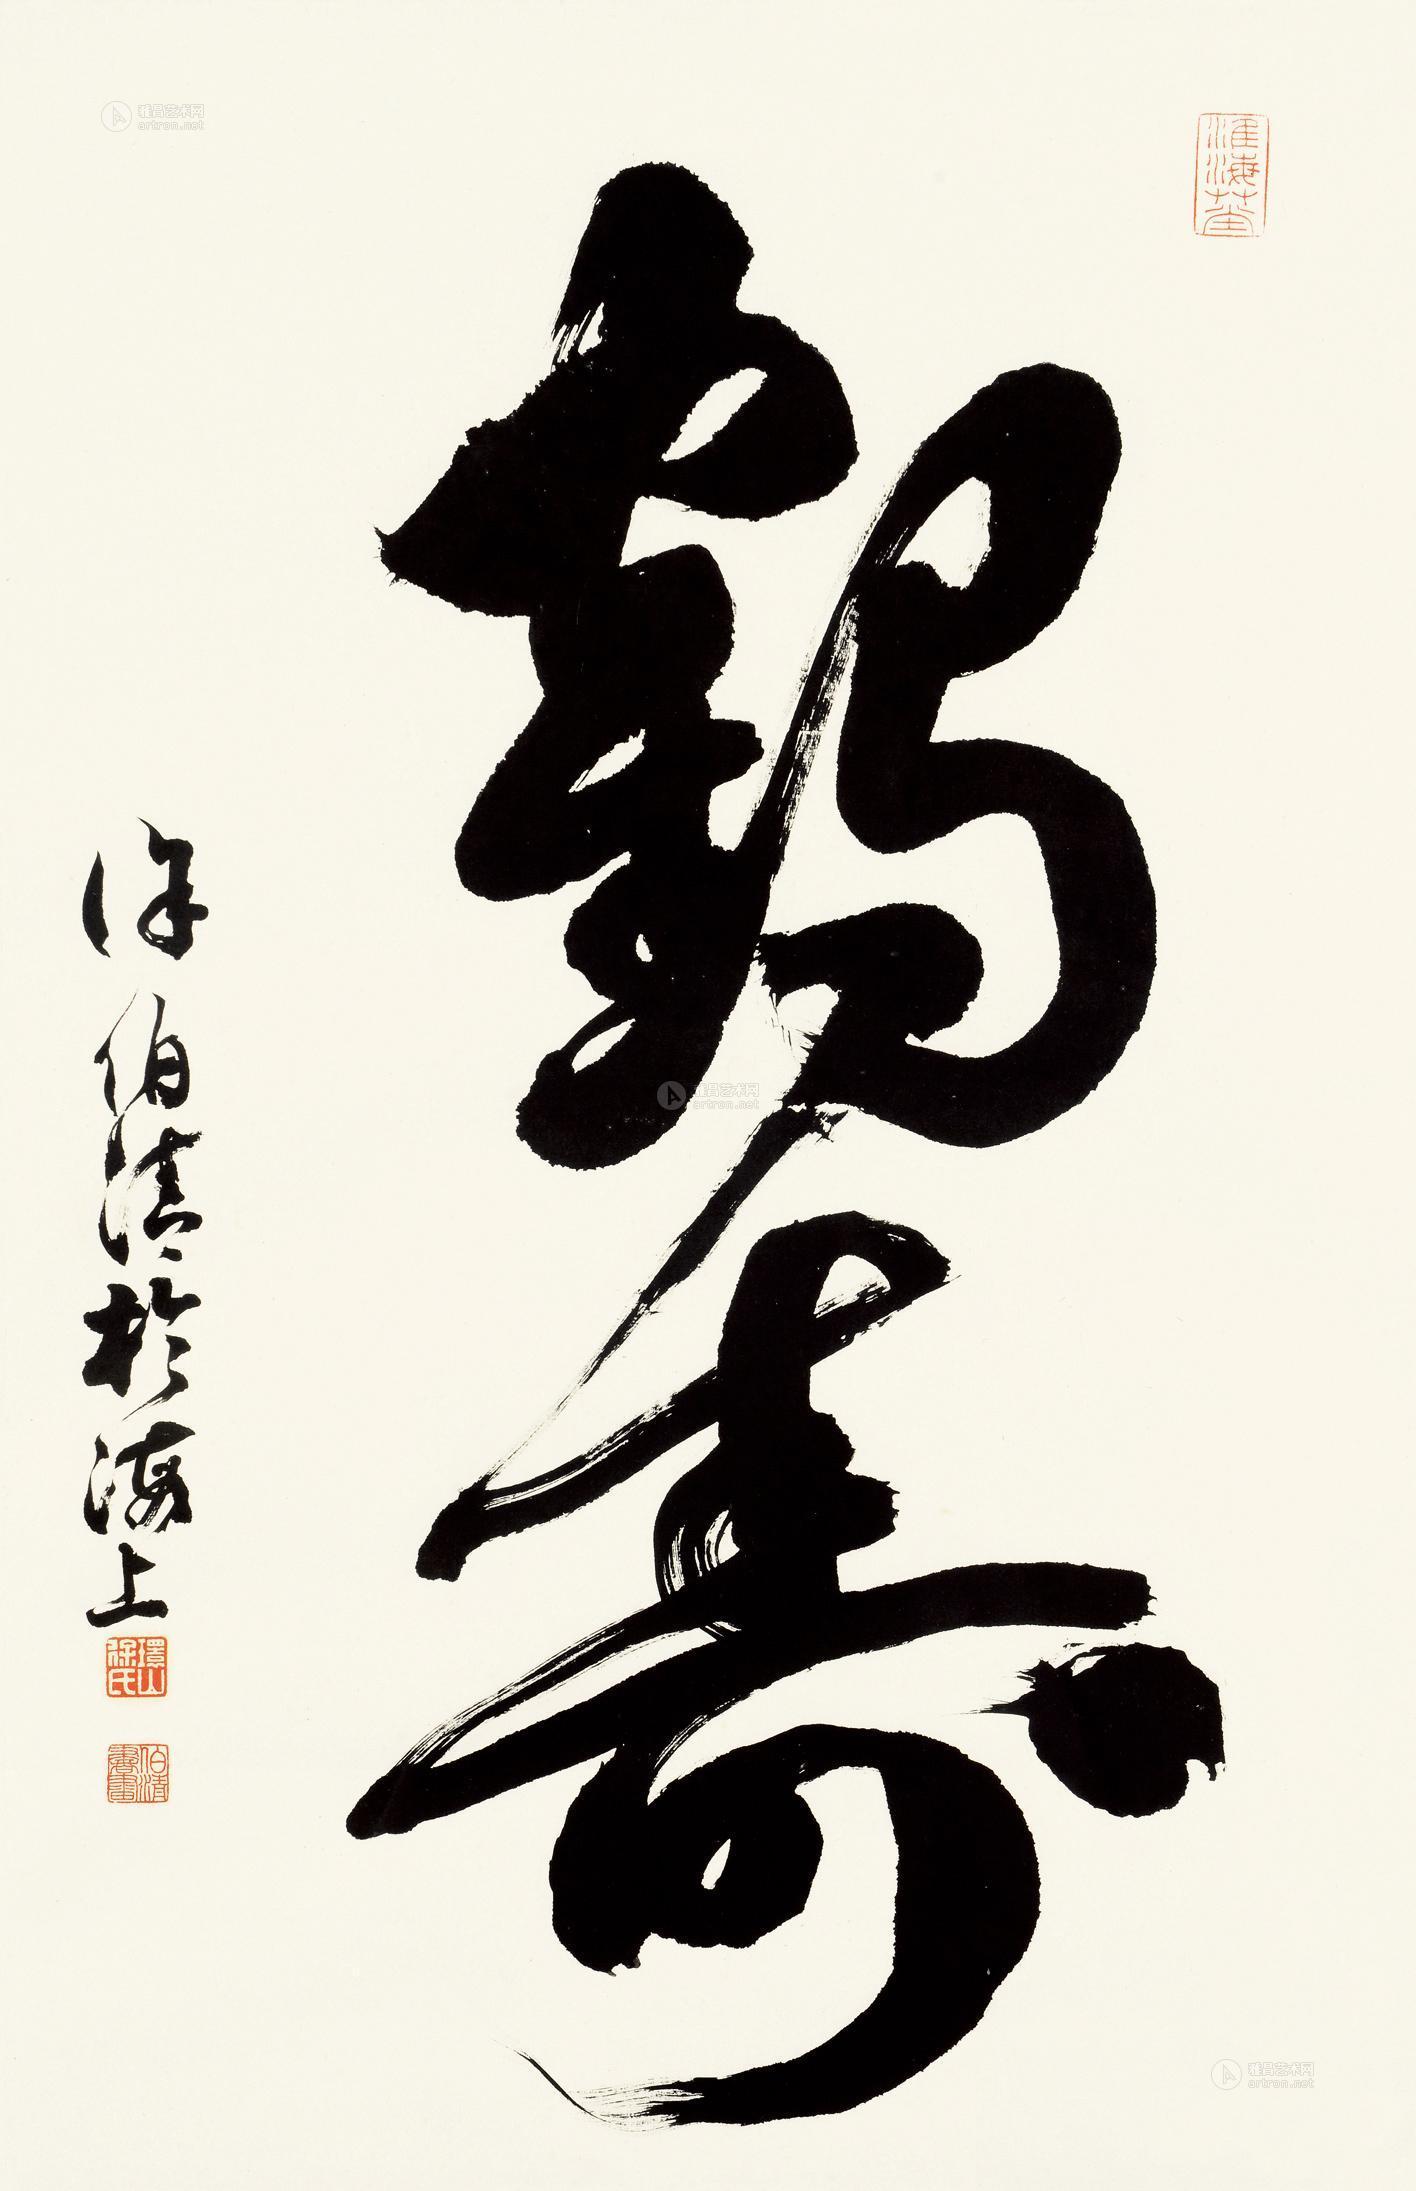 鹤寿
徐伯清於海上
環山徐氏
伯清書畫
雅昌艺术网
artron.net
雅昌艺术网
artron.net
雅昌艺术网
artron.net